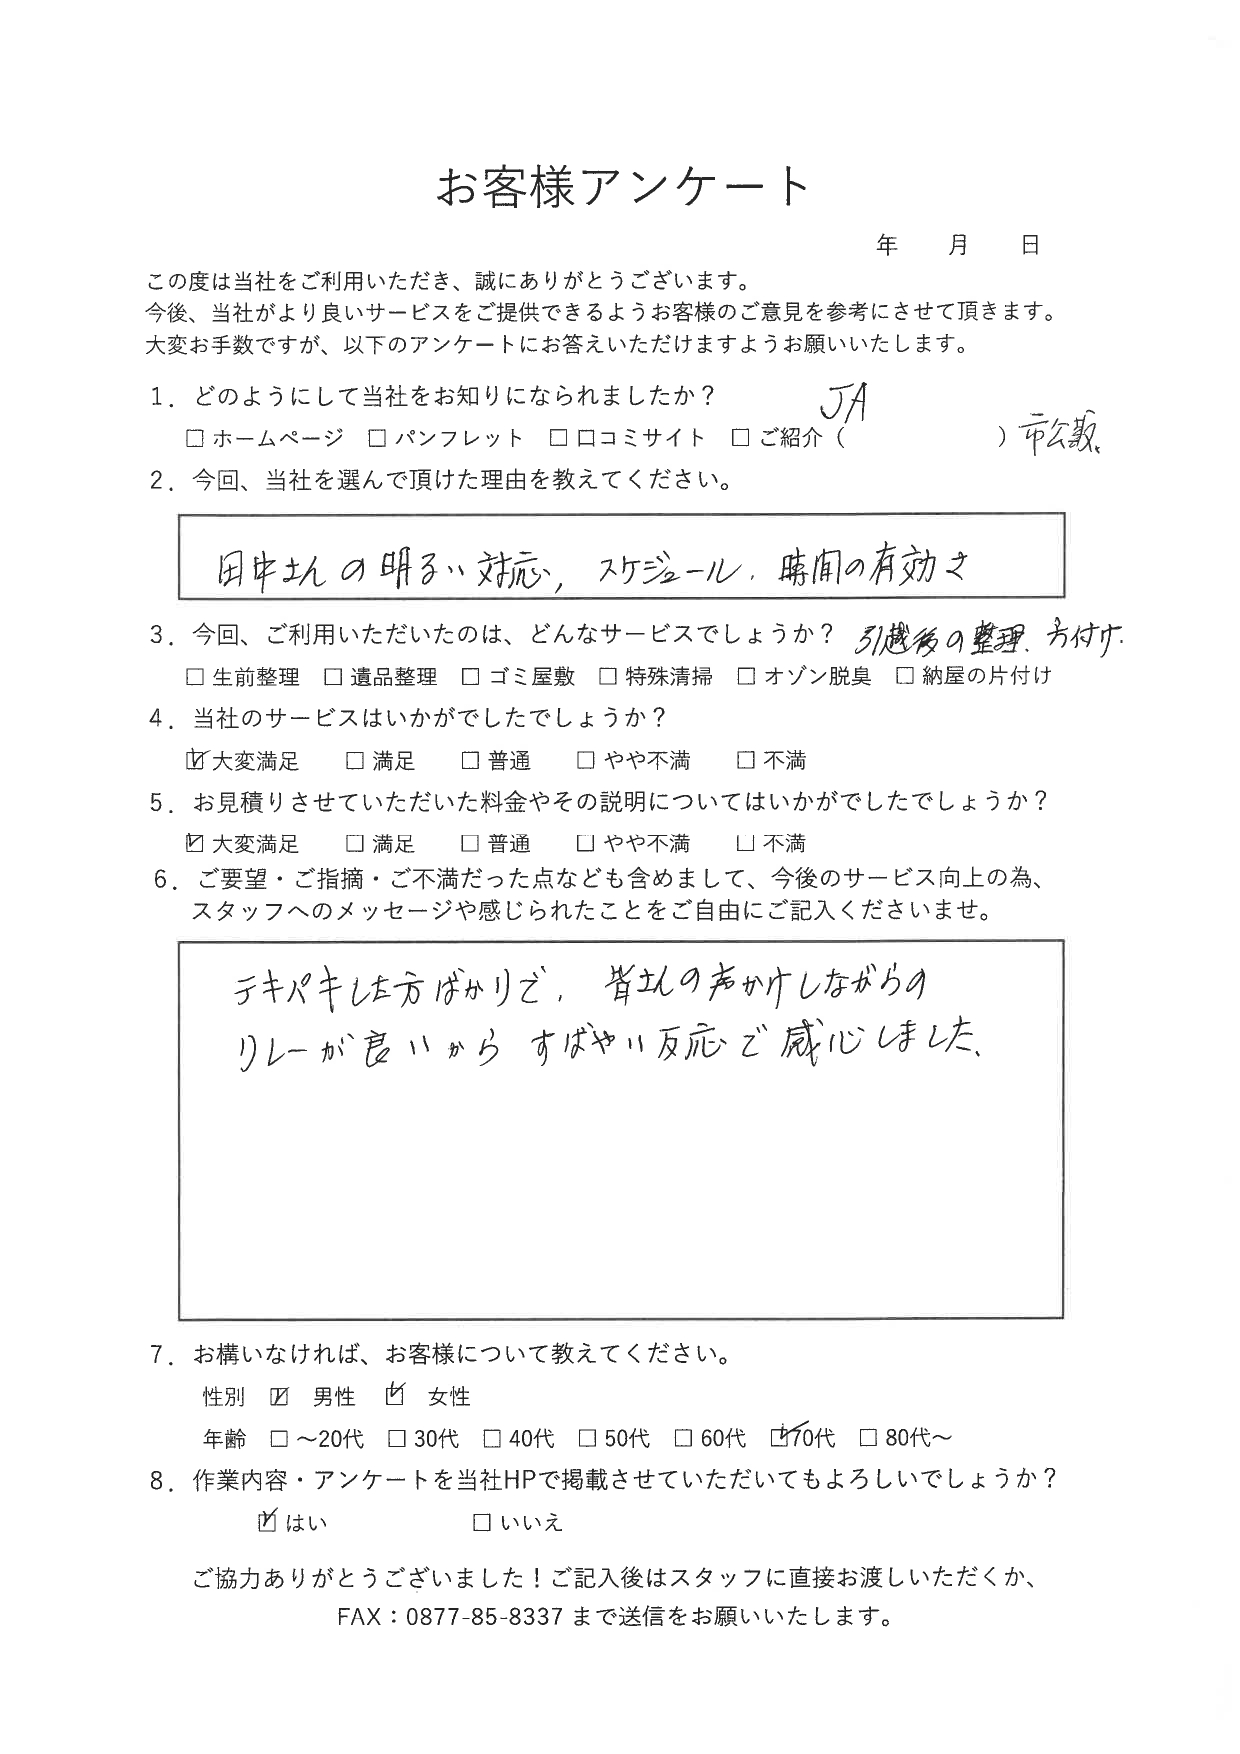 お客様アンケート
年 月 日
この度は当社をご利用いただき、誠にありがとうございます。
今後、当社がより良いサービスをご提供できるようお客様のご意見を参考にさせて頂きます。
大変お手数ですが、以下のアンケートにお答えいただけますようお願いいたします。
1．どのようにして当社をお知りになられましたか？ JA
□ ホームページ □ パンフレット □ 口コミサイト □ ご紹介（ ）市公報、
2．今回、当社を選んで頂けた理由を教えてください。
田中さんの明るい対応, スケジュール, 時間の有効さ
3．今回、ご利用いただいたのは、どんなサービスでしょうか？ 引越後の整理、片付け.
□ 生前整理 □ 遺品整理 □ ゴミ屋敷 □ 特殊清掃 □ オゾン脱臭 □ 納屋の片付け
4．当社のサービスはいかがでしたでしょうか？
☑ 大変満足 □ 満足 □ 普通 □ やや不満 □ 不満
5．お見積りさせていただいた料金やその説明についてはいかがでしたでしょうか？
☑ 大変満足 □ 満足 □ 普通 □ やや不満 □ 不満
6．ご要望・ご指摘・ご不満だった点なども含めまして、今後のサービス向上の為、
スタッフへのメッセージや感じられたことをご自由にご記入くださいませ。
テキパキした方ばかりで, 皆さんの声かけしながらの
リレーが良いから すばやい反応で感心しました、
7．お構いなければ、お客様について教えてください。
性別 ☑ 男性 ☑ 女性
年齢 □ ～20代 □ 30代 □ 40代 □ 50代 □ 60代 ☑ 70代 □ 80代～
8．作業内容・アンケートを当社HPで掲載させていただいてもよろしいでしょうか？
☑ はい □ いいえ
ご協力ありがとうございました！ご記入後はスタッフに直接お渡しいただくか、
FAX：0877-85-8337 まで送信をお願いいたします。